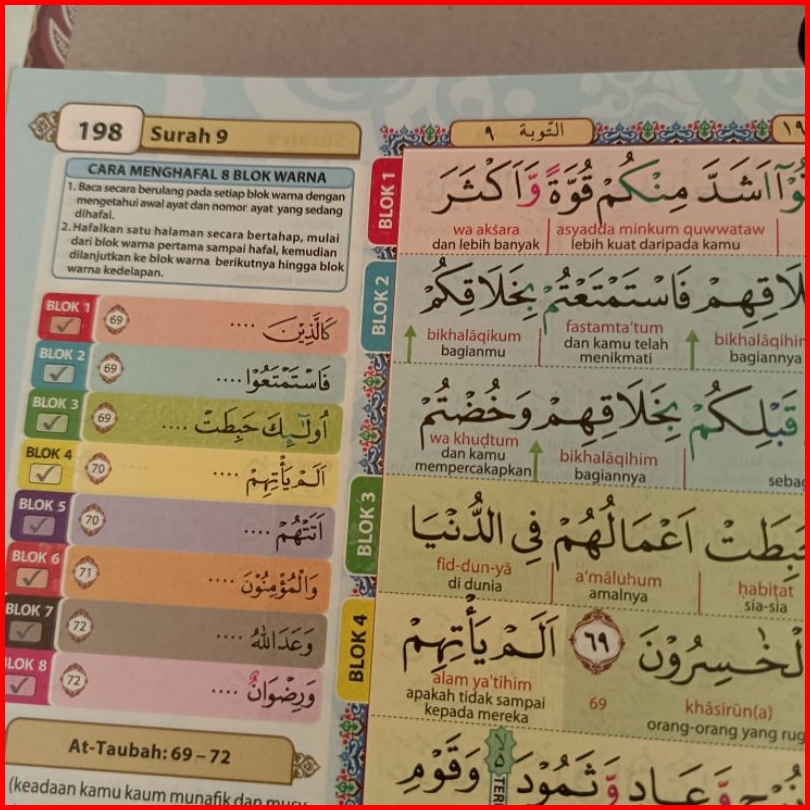 198 Surah 9
CARA MENGHAFAL 8 BLOK WARNA
1. Baca secara berulang pada setiap blok warna dengan
mengetahui awal ayat dan nomor ayat yang sedang
dihafal.
2. Hafalkan satu halaman secara bertahap, mulai
dari blok warna pertama sampai hafal, kemudian
dilanjutkan ke blok warna berikutnya hingga blok
warna kedelapan.
BLOK 1 69 كَالَّذِيْنَ ....
BLOK 2 69 فَاسْتَمْتَعُوْا ....
BLOK 3 69 اُولٰۤىِٕكَ حَبِطَتْ ....
BLOK 4 70 اَلَمْ يَأْتِهِمْ ....
BLOK 5 70 اَتَتْهُمْ ....
BLOK 6 71 وَالْمُؤْمِنُوْنَ ....
BLOK 7 72 وَعَدَ اللّٰهُ ....
BLOK 8 72 وَرِضْوَانٌ ....
At-Taubah: 69 – 72
(keadaan kamu kaum munafik dan
التّوبة ٩
BLOK 1
اَشَدَّ مِنْكُمْ قُوَّةً وَّاَكْثَرَ
asyadda minkum quwwataw wa akšara
lebih kuat daripada kamu dan lebih banyak
BLOK 2
فَاسْتَمْتَعْتُمْ بِخَلَاقِكُمْ
fastamta'tum bikhalāqikum
dan kamu telah menikmati bagianmu
bagiannya
قَبْلِكُمْ بِخَلَاقِهِمْ وَخُضْتُمْ
bikhalāqihim wa khuḍtum
bagiannya dan kamu mempercakapkan
BLOK 3
اَعْمَالُهُمْ فِى الدُّنْيَا
ḥabiṭat a'māluhum fid-dun-yā
sia-sia amalnya di dunia
BLOK 4
٦٩ اَلَمْ يَأْتِهِمْ
khāsirūn(a) 69 alam ya'tihim
orang-orang yang apakah tidak sampai kepada mereka
وَّعَادٍ وَّثَمُوْدَ وَقَوْمِ